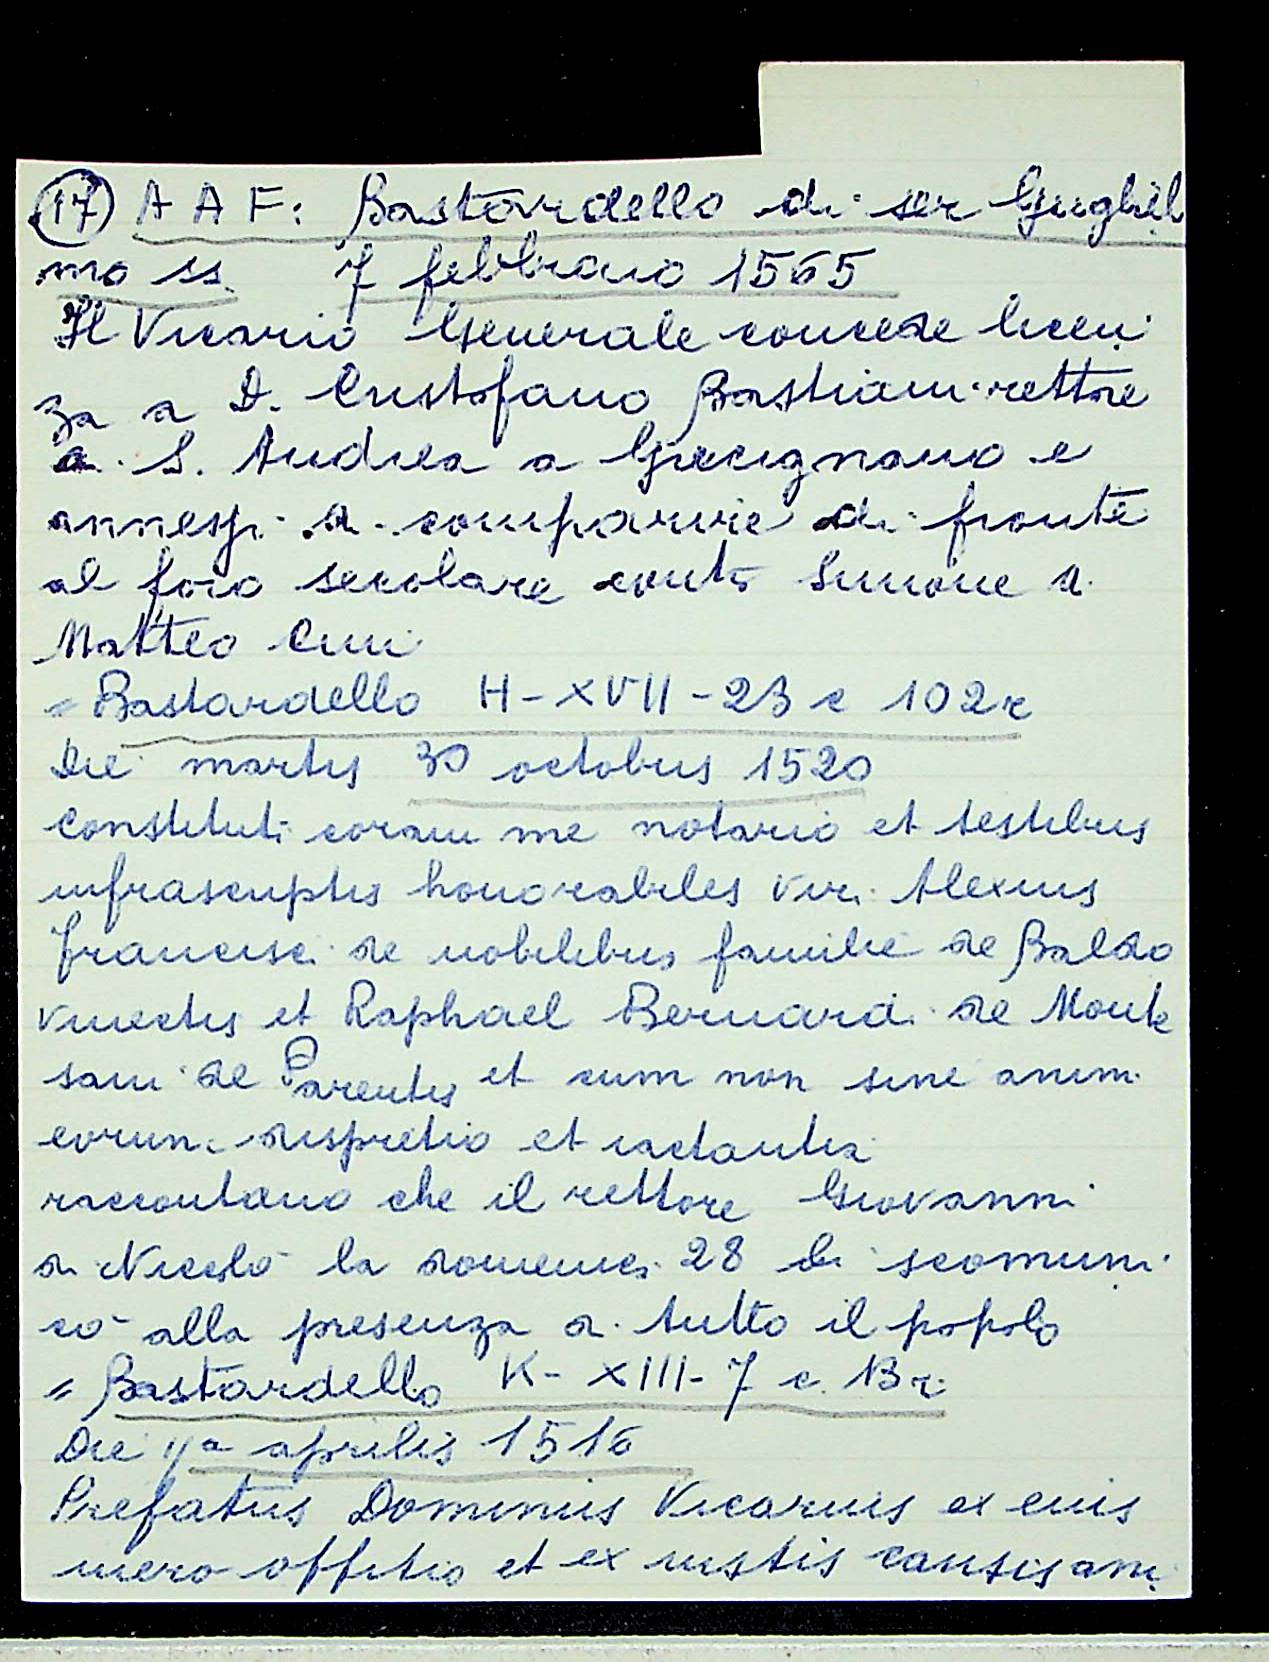 (17) A A F: Bastardello di ser Gughiel
mo ss. 7 febbraio 1565
Il Vicario Generale concede licen
za a D. Cristofano Bastiani rettore
a S. Andrea a Grecignano e
annessi di comparire di fronte
al foro secolare contro Simone di
Matteo Cini
= Bastardello H-XVII-23 c 102r
Die martis 30 octobris 1520
Constituti coram me notario et testibus
infrascriptis honorabiles viri Alexius
Francisci de nobilibus familie de Baldo
vinectis et Raphael Bernardi de Monte
sani de Parentis et cum non sine animi
eorum dispretio et iactantia
raccontano che il rettore Giovanni
di Niccolò la domenica 28 li scomuni
cò alla presenza di tutto il popolo
= Bastardello K-XIII-7 c. 13r
Die 11a aprilis 1516
Prefatus Dominus Vicarius ex eius
mero offitio et ex iustis causis ani